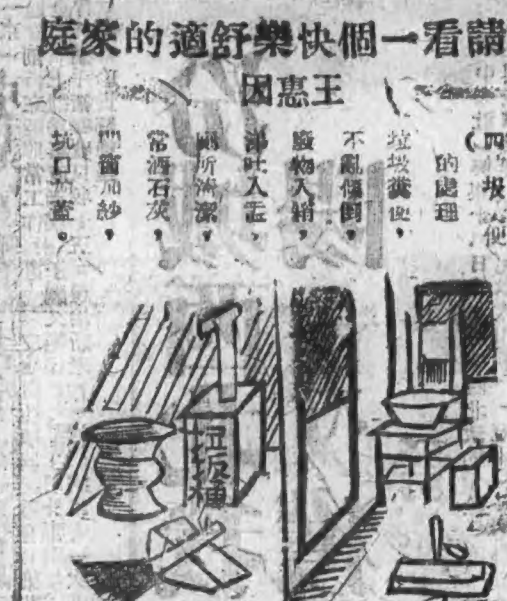 請看一個快樂舒適的家庭
王惠因
(四)垃圾糞便
的處理
垃圾糞便,
不亂傾倒,
廢物入箱,
吐入盂,
廁所清潔,
常洒石灰,
門窗加紗,
坑口加蓋。
垃圾